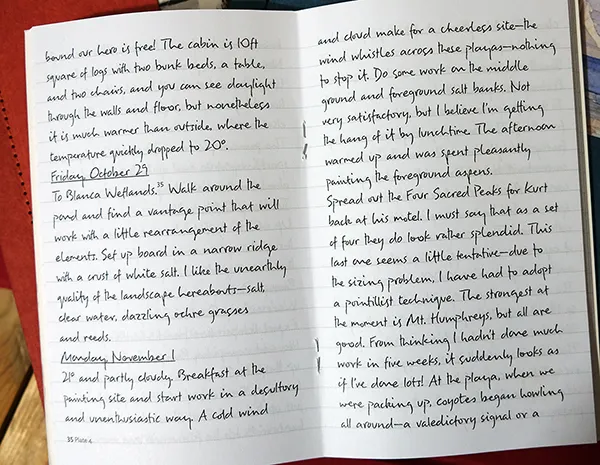 bound our hero is free! The cabin is 10ft
square of logs with two bunk beds, a table,
and two chairs, and you can see daylight
through the walls and floor, but nonetheless
it is much warmer than outside, where the
temperature quickly dropped to 20°.
Friday October 29
To Blanca Wetlands.35 Walk around the
pond and find a vantage point that will
work with a little rearrangement of the
elements. Set up board in a narrow ridge
with a crust of white salt. I like the unearthly
quality of the landscape hereabouts—salt,
clear water, dazzling ochre grasses
and reeds.
Monday November 1
21° and partly cloudy. Breakfast at the
painting site and start work in a desultory
and unenthusiastic way. A cold wind
35 Plate 4
and cloud make for a cheerless site—the
wind whistles across these playas—nothing
to stop it. Do some work on the middle
ground and foreground salt banks. Not
very satisfactory, but I believe I'm getting
the hang of it by lunchtime. The afternoon
warmed up and was spent pleasantly
painting the foreground aspens.
Spread out the Four Sacred Peaks for Kurt
back at his motel. I must say that as a set
of four they do look rather splendid. This
last one seems a little tentative—due to
the sizing problem, I have had to adopt
a pointillist technique. The strongest at
the moment is Mt. Humphreys, but all are
good. From thinking I hadn't done much
work in five weeks, it suddenly looks as
if I've done lots! At the playa, when we
were packing up, coyotes began howling
all around—a valedictory signal or a